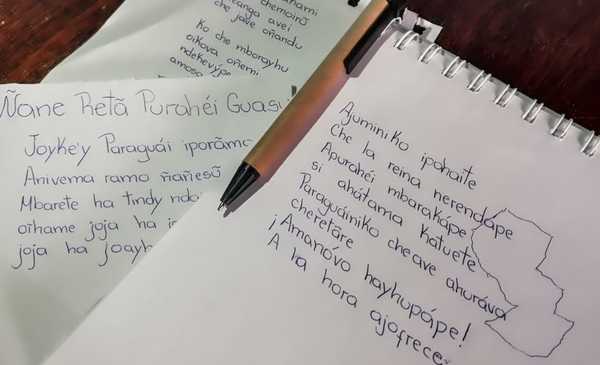 che jave oñandu
Ko che mborayhu
oikova oñemi
ndekevýpe
Ñane Retã Purahéi Guasu
Joyke'y Paraguái iporãma
Anivema ramo ñañesũ
Mbarete ha tindy
oĩhame joja ha
joja ha
Ajuminiko ipohaite
Che la reina nerendápe
Apurahéi mbarakápe
si ahátama katuete
Paraguáiniko cheave ahuráva
cheretãre
¡Amanóvo hayhupápe!
A la hora ajofrece